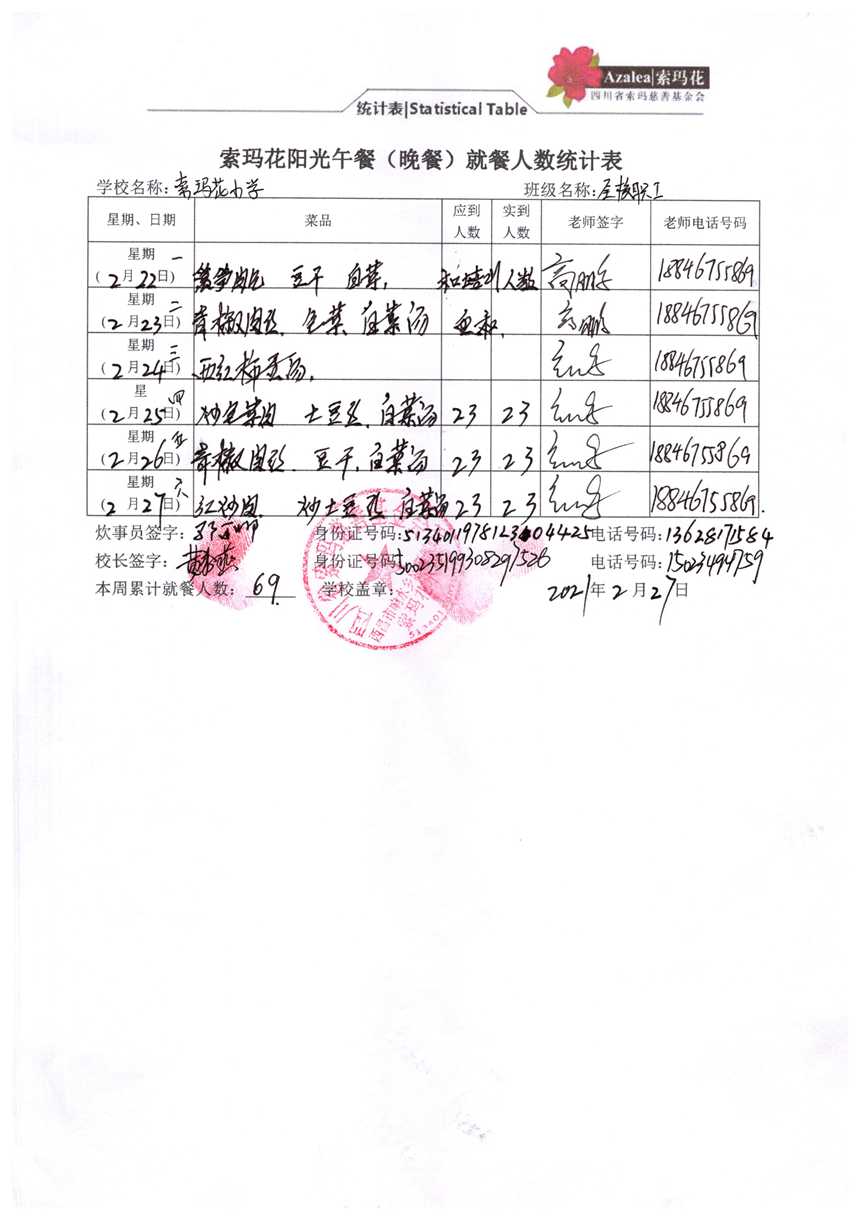 Azalea|索玛花
四川省索玛慈善基金会
统计表|Statistical Table
索玛花阳光午餐（晚餐）就餐人数统计表
学校名称：索玛花小学 班级名称：全校职工
星期、日期 菜品 应到人数 实到人数 老师签字 老师电话号码
星期 一
(2月22日) 豆干 白菜, 和培训人数 高鹏 18846755869
星期 二
(2月23日) 青椒肉丝. 白菜汤 高鹏 18846755869
星期 三
(2月24日) 西红柿蛋汤. 18846755869
星 四
(2月25日) 土豆丝. 白菜汤 23 23 18846755869
星期 五
(2月26日) 青椒肉丝. 豆干. 白菜汤 23 23 18846755869
星期 六
(2月27日) 炒土豆丝 白菜汤 23 23 18846755869.
炊事员签字: 身份证号码: 电话号码: 13628171584
校长签字: 身份证号码: 500235199308291526 电话号码: 15023494759
本周累计就餐人数: 69. 学校盖章: 2021年2月27日